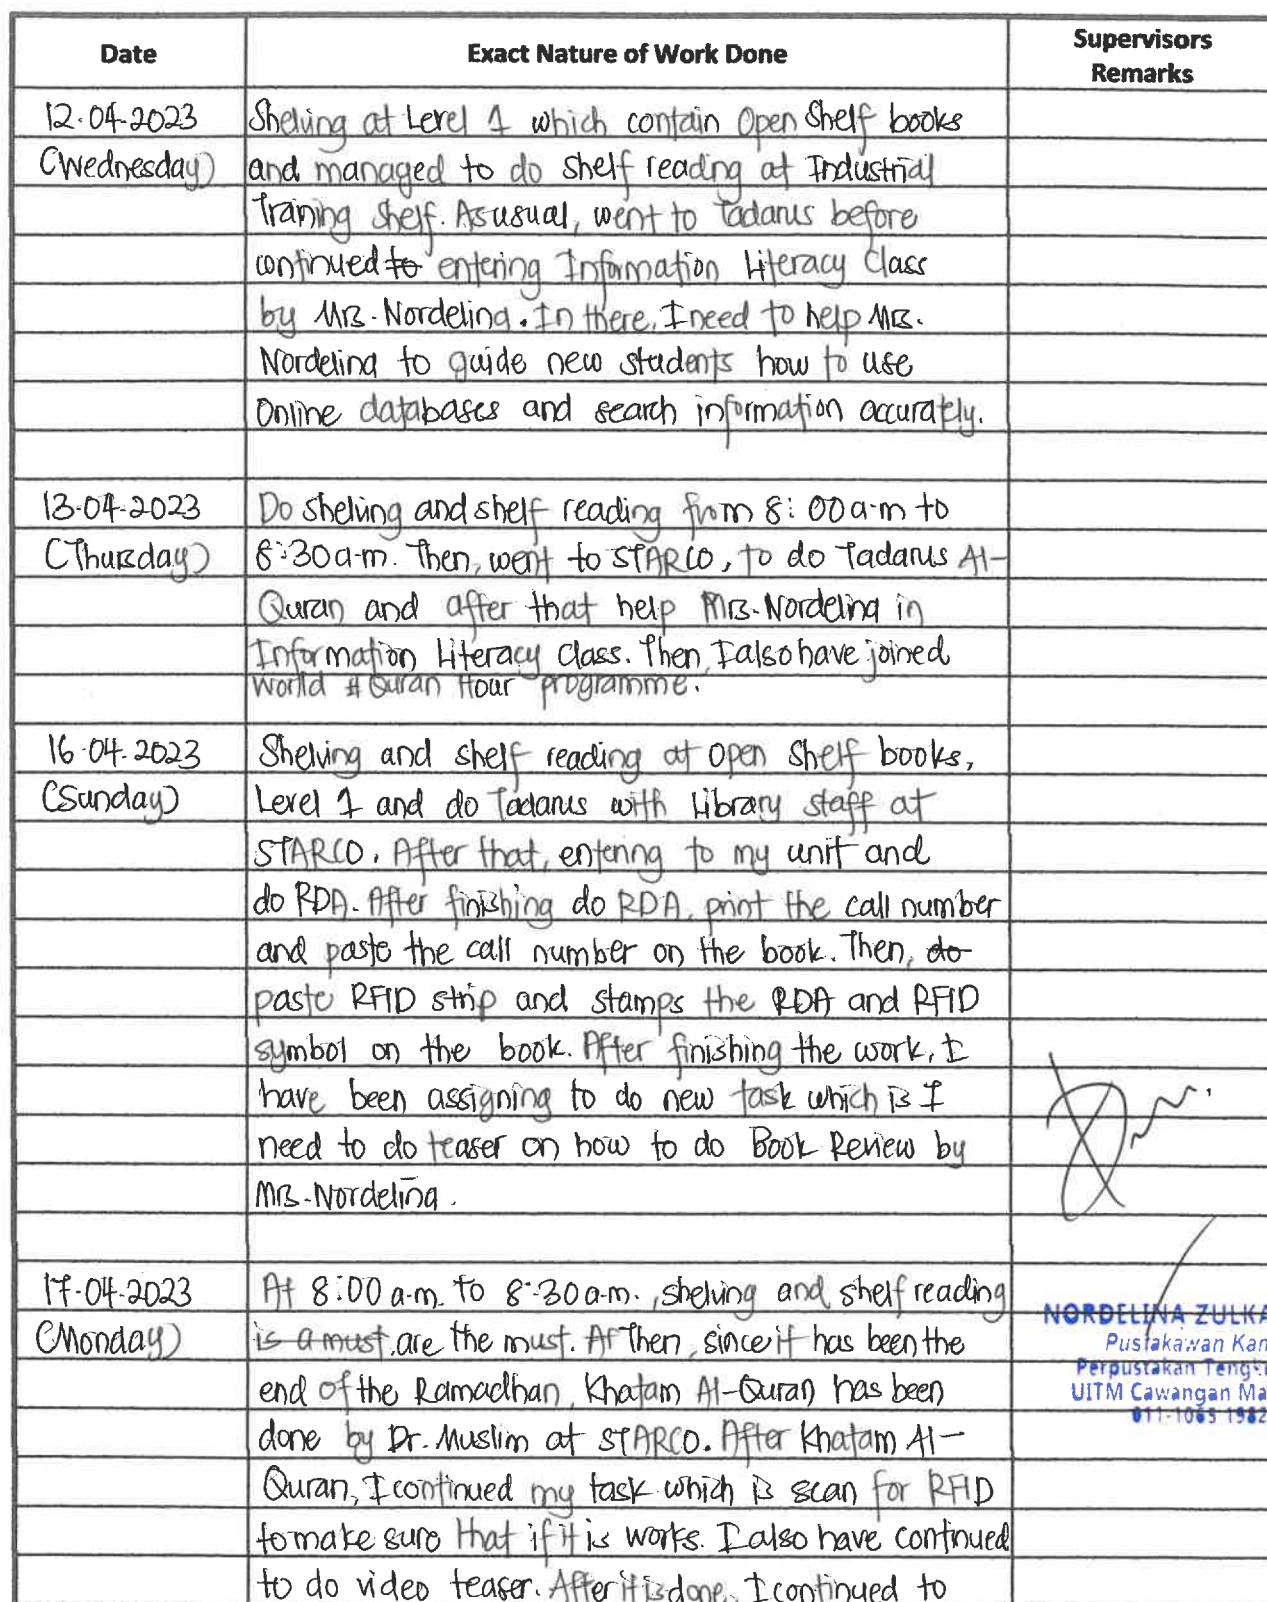 Date Exact Nature of Work Done Supervisors Remarks
12-04-2023 Shelving at Level 1 which contain Open Shelf books
(Wednesday) and managed to do shelf reading at Industrial
Training Shelf. As usual, went to Tadarus before
continued to entering Information Literacy Class
by Mrs. Nordelina. In there, I need to help Mrs.
Nordelina to guide new students how to use
Online databases and search information accurately.
13-04-2023 Do shelving and shelf reading from 8:00 a.m to
(Thursday) 8:30 a.m. Then, went to STARCO, to do Tadarus Al-
Quran and after that help Mrs. Nordelina in
Information Literacy Class. Then, I also have joined
World # Quran Hour programme.
16-04-2023 Shelving and shelf reading at Open Shelf books,
(Sunday) Level 1 and do Tadarus with Library staff at
STARCO. After that, entering to my unit and
do RDA. After finishing do RDA, print the call number
and paste the call number on the book. Then, do
paste RFID strip and stamps the RDA and RFID
symbol on the book. After finishing the work, I
have been assigning to do new task which is I
need to do teaser on how to do Book Review by
Mrs. Nordelina.
17-04-2023 At 8:00 a.m. to 8:30 a.m., shelving and shelf reading
(Monday) is a must, are the must. Af Then, since it has been the
end of the Ramadhan, Khatam Al-Quran has been
done by Dr. Muslim at STARCO. After Khatam Al-
Quran, I continued my task which is scan for RFID
to make sure that if it is works. I also have continued
to do video teaser. After it is done, I continued to
NORDELINA ZULKA
Pustakawan Kan
Perpustakan Teng
UITM Cawangan Ma
011-1065 1982